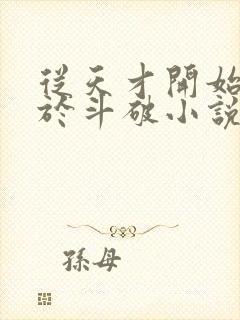 從天才開始
於斗破小說
孫母